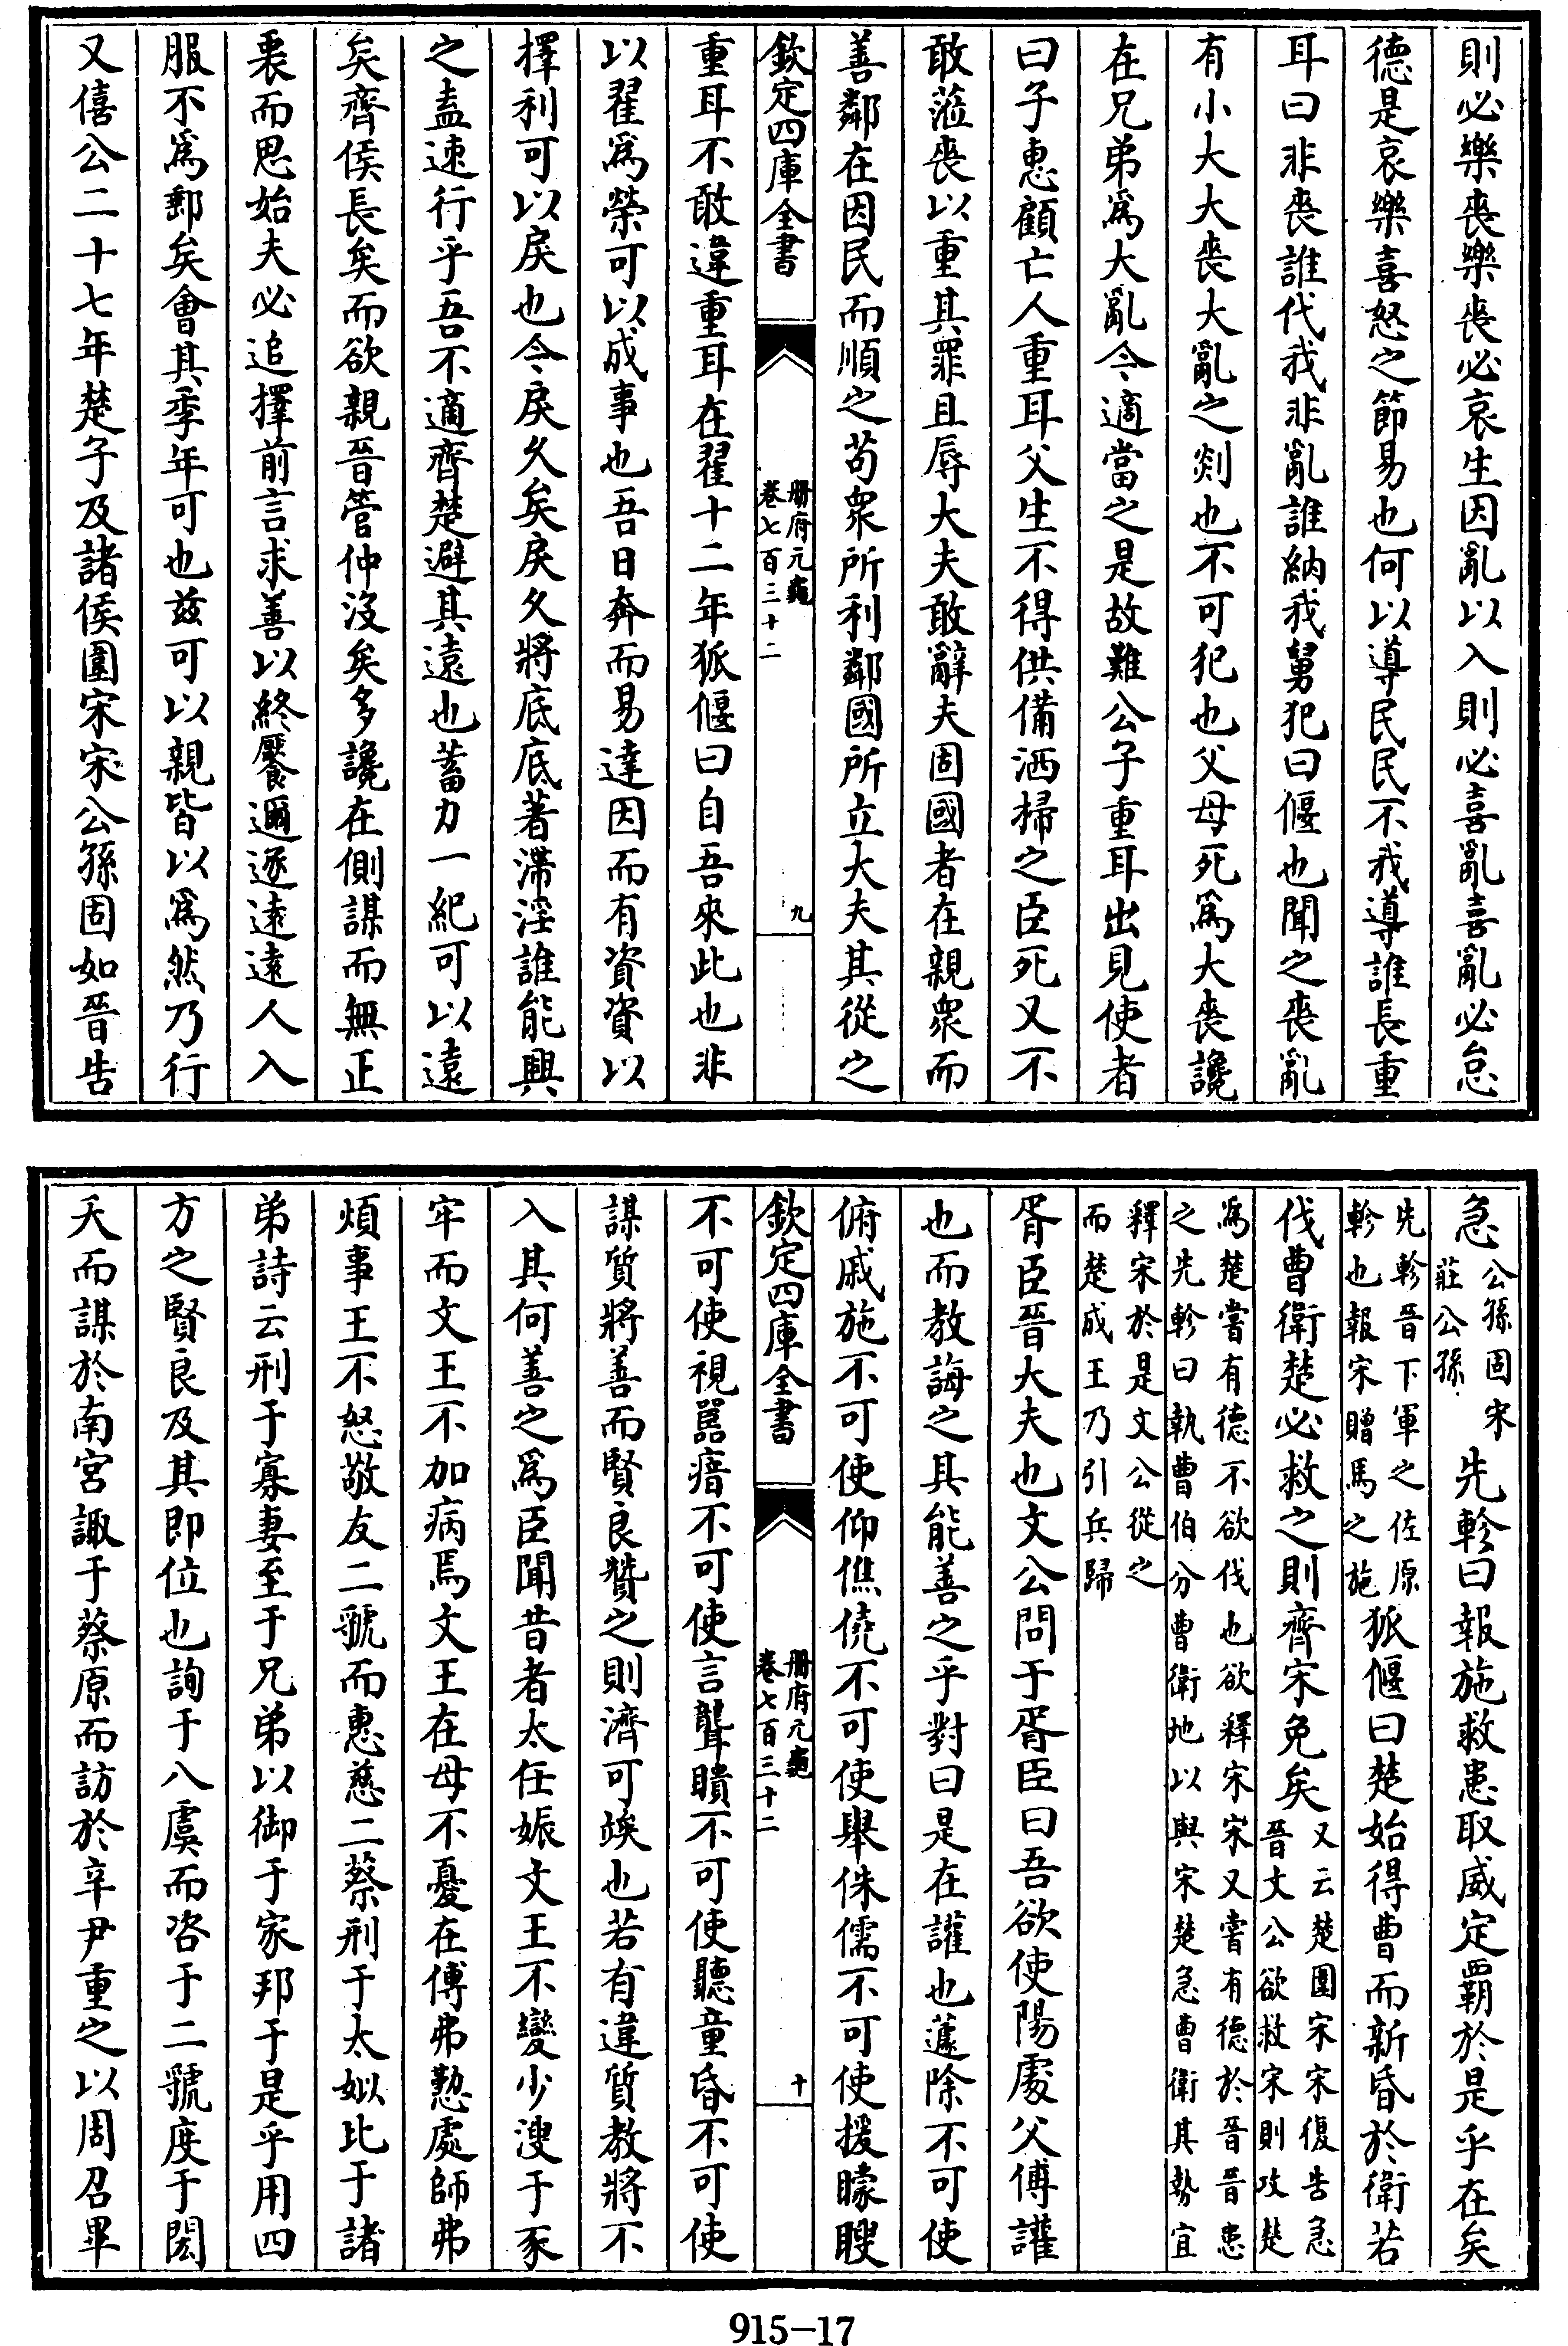 則必樂喪樂喪必哀生因亂以入則必喜亂喜亂必怠
德是哀樂喜怒之節易也何以導民民不我導誰長重
耳曰非喪誰代我非亂誰納我舅犯曰偃也聞之喪亂
有小大大喪大亂之剡也不可犯也父母死為大喪讒
在兄弟為大亂今適當之是故難公子重耳出見使者
曰子惠顧亡人重耳父生不得供備洒掃之臣死又不
敢蒞喪以重其罪且辱大夫敢辭夫固國者在親衆而
善鄰在因民而順之苟衆所利鄰國所立大夫其從之
欽定四庫全書
冊府元龜
卷七百三十二
九
重耳不敢違重耳在翟十二年狐偃曰自吾來此也非
以翟為榮可以成事也吾日奔而易達因而有資資以
擇利可以戾也今戾久矣戾久將底底著滯淫誰能興
之盍速行乎吾不適齊楚避其遠也蓄力一紀可以遠
矣齊侯長矣而欲親晉管仲沒矣多讒在側謀而無正
衷而思始夫必追擇前言求善以終饜邇逐遠遠人入
服不為郵矣會其季年可也茲可以親皆以為然乃行
又僖公二十七年楚子及諸侯圍宋宋公孫固如晉告
急
公孫固宋
莊公孫
先軫曰報施救患取威定覇於是乎在矣
先軫晉下軍之佐原
軫也報宋贈馬之施
狐偃曰楚始得曹而新昏於衛若
伐曹衛楚必救之則齊宋免矣
又云楚圍宋宋復告急
晉文公欲救宋則攻楚
為楚嘗有德不欲伐也欲釋宋宋又嘗有德於晉晉患
之先軫曰執曹伯分曹衛地以與宋楚急曹衛其勢宜
釋宋於是文公從之
而楚成王乃引兵歸
胥臣晉大夫也文公問于胥臣曰吾欲使陽處父傅讙
也而教誨之其能善之乎對曰是在讙也蘧除不可使
俯戚施不可使仰僬僥不可使舉侏儒不可使援矇瞍
欽定四庫全書
冊府元龜
卷七百三十二
十
不可使視嚚瘖不可使言聾聵不可使聽童昏不可使
謀質將善而賢良贊之則濟可竢也若有違質教將不
入其何善之為臣聞昔者太任娠文王不變少溲于豕
牢而文王不加病焉文王在母不憂在傅弗懃處師弗
煩事王不怒敬友二虢而惠慈二蔡刑于太姒比于諸
弟詩云刑于寡妻至于兄弟以御于家邦于是乎用四
方之賢良及其即位也詢于八虞而咨于二虢度于閎
夭而謀於南宮諏于蔡原而訪於辛尹重之以周召畢
915-17